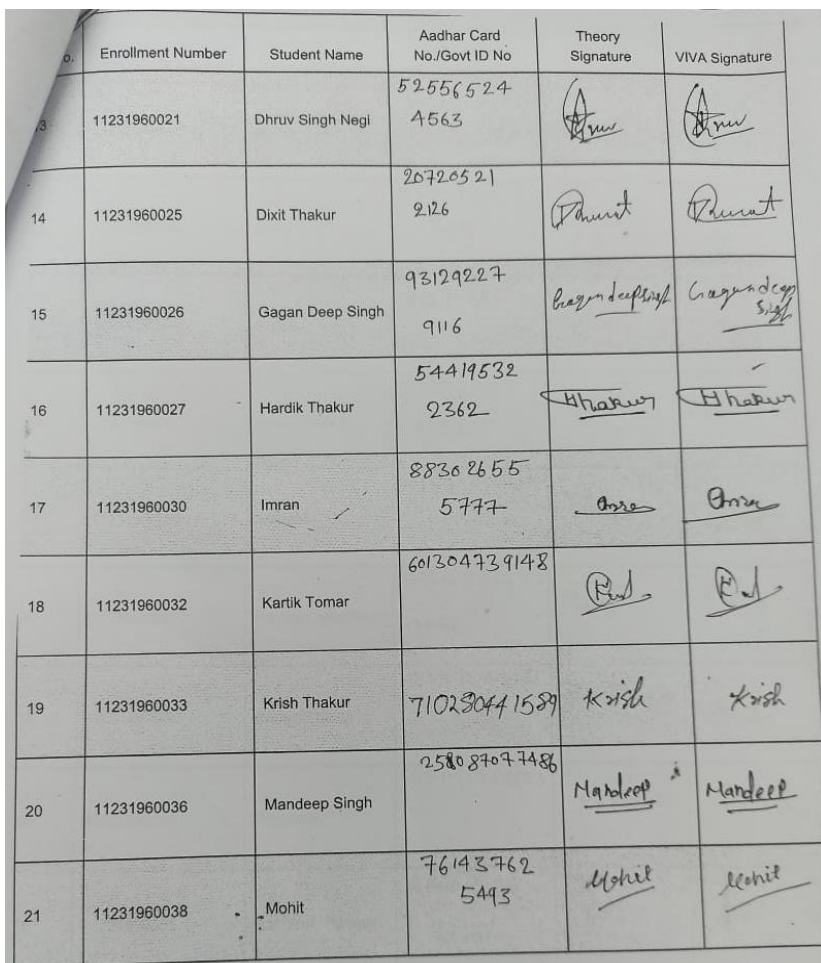 o. Enrollment Number Student Name Aadhar Card No./Govt ID No Theory Signature VIVA Signature
11231960021 Dhruv Singh Negi 52556524
4563
14 11231960025 Dixit Thakur 20720521
2126
15 11231960026 Gagan Deep Singh 93129227
9116 Gagandeep Singh Gagandeep Singh
16 11231960027 Hardik Thakur 54419532
2362 Thakur Thakur
17 11231960030 Imran 88302655
5777
18 11231960032 Kartik Tomar 601304739148
19 11231960033 Krish Thakur 710280441589 Krish Krish
20 11231960036 Mandeep Singh Mandeep Mandeep
21 11231960038 Mohit 76143762
5493 Mohit Mohit